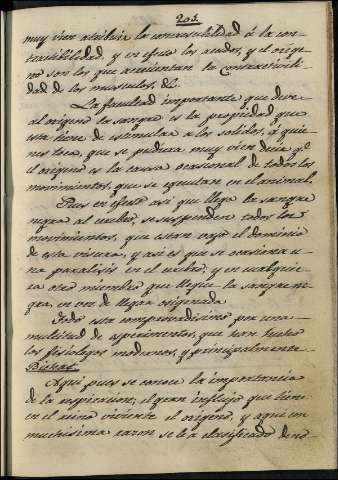 203.
muy bien atribuir la concausalidad á la con-
tractibilidad, y en efecto los acidos, y el oxige-
no son los que aumentan la contractivili-
dad de los musculos, &c.
La facultad importante que deve
al oxigeno la sangre es la propiedad que
esta tiene de estimular a los solidos, á quie-
nes toca, que se pudiera muy bien decir q.e
el oxigeno es la causa ocasional de todos los
movimientos, que se egecutan en el animal.
Pues en efecto asi que llega la sangre
negra al celebro, se suspenden todos los
movimientos, que estan vajo el dominio
de esta viscera, y asi es que se ocasiona u-
na paralisis en el celebro, y en cualquie-
ra otro miembro que llegue la sangre ne-
gra, en vez de llegar oxigenada.
Todo esta comprovadisimo por una
multitud de esperimentos, que han hecho
los fisiologos modernos, y principalmente
Bichat.
Aqui pues se conoce la importancia
de la respiracion, el gran influjo que tiene
en el reino viviente el oxigeno, y que con
muchisima razon se le a clasificado deno-